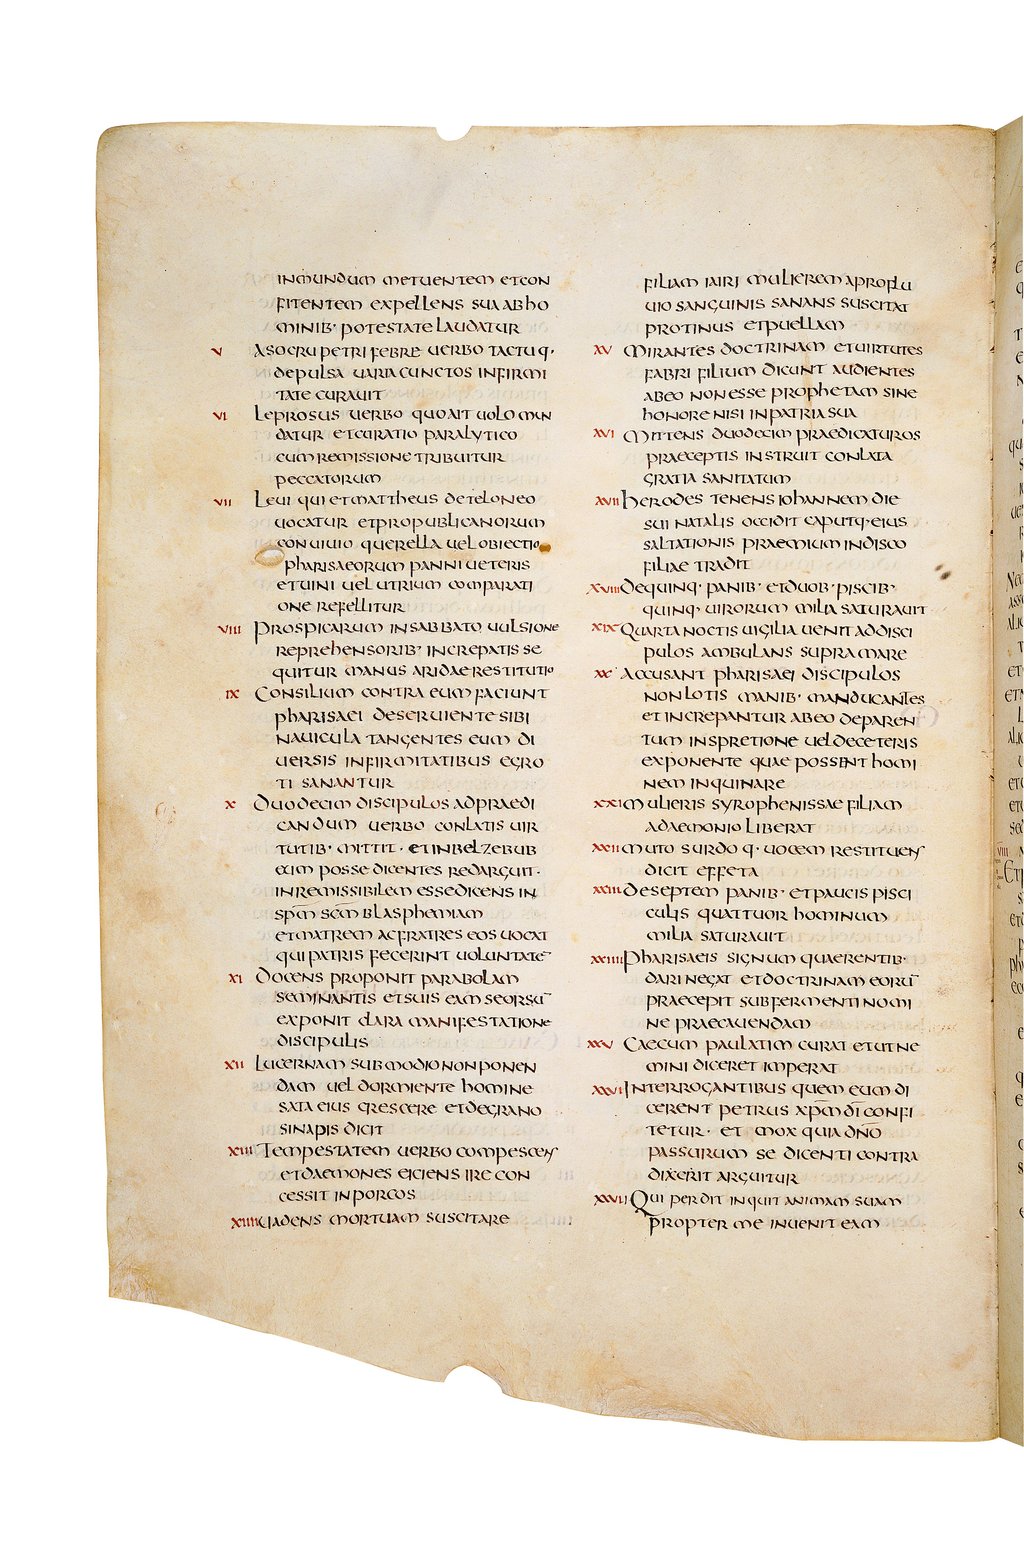 inmundum metuentem et con
fitentem expellens sua ab ho
minib· potestate laudatur
v A socru petri febre uerbo tactu q·
depulsa uaria cunctos infirmi
tate curauit
vi Leprosus uerbo quo ait uolo mun
datur et curatio paralytico
cum remissione tribuitur
peccatorum
vii Leui qui et mattheus de teloneo
uocatur et pro publicanorum
conuiuio querella uel obiectio
pharisaeorum panni ueteris
et uini uel utrium comparati
one refellitur
viii Pro spicarum in sabbato uulsione
reprehensorib· increpatis se
quitur manus aridae restitutio
ix Consilium contra eum faciunt
pharisaei deseruiente sibi
nauicula tangentes eum di
uersis infirmitatibus egro
ti sanantur
x Duodecim discipulos ad praedi
candum uerbo conlatis uir
tutib· mittit· et in belzebub
eum posse dicentes redarguit·
inremissibilem esse dicens in
sp̄m sc̄m blasphemiam
et matrem ac fratres eos uocat
qui patris fecerint uoluntatē
xi Docens proponit parabolam
seminantis et suis eam seorsū
exponit clara manifestatione
discipulis
xii Lucernam sub modio non ponen
dam uel dormiente homine
sata eius crescere et de grano
sinapis dicit
xiii Tempestatem uerbo compescens
et daemones eiciens iire con
cessit in porcos
xiiii Uadens mortuam suscitare
filiam iairi mulierem a proflu
uio sanguinis sanans suscitat
protinus et puellam
xv Mirantes doctrinam et uirtutes
fabri filium dicunt audientes
ab eo non esse prophetam sine
honore nisi in patria sua
xvi Mittens duodecim praedicaturos
praeceptis instruit conlata
gratia sanitatum
xvii herodes tenens iohannem die
sui natalis occidit caputq· eius
saltationis praemium in disco
filiae tradit
xviii De quinq· panib· et duob· piscib·
quinq· uirorum milia saturauit
xix Quarta noctis uigilia uenit ad disci
pulos ambulans supra mare
xx Accusant pharisaei discipulos
non lotis manib· manducantes
et increpantur ab eo de paren
tum inspretione uel de ceteris
exponente quae possent homi
nem inquinare
xxi Mulieris syrophenissae filiam
a daemonio liberat
xxii Muto surdo q· uocem restituens
dicit effeta
xxiii De septem panib· et paucis pisci
culis quattuor hominum
milia saturauit
xxiiii Pharisaeis signum quaerentib·
dari negat et doctrinam eorū
praecepit sub fermenti nomi
ne praecauendam
xxv Caecum paulatim curat et ut ne
mini diceret imperat
xxvi Interrogantibus quem eum di
cerent petrus xp̄m d̄i confi
tetur· et mox quia dn̄o
passurum se dicenti contra
dixerit arguitur
xxvii Qui perdit inquit animam suam
propter me inuenit eam